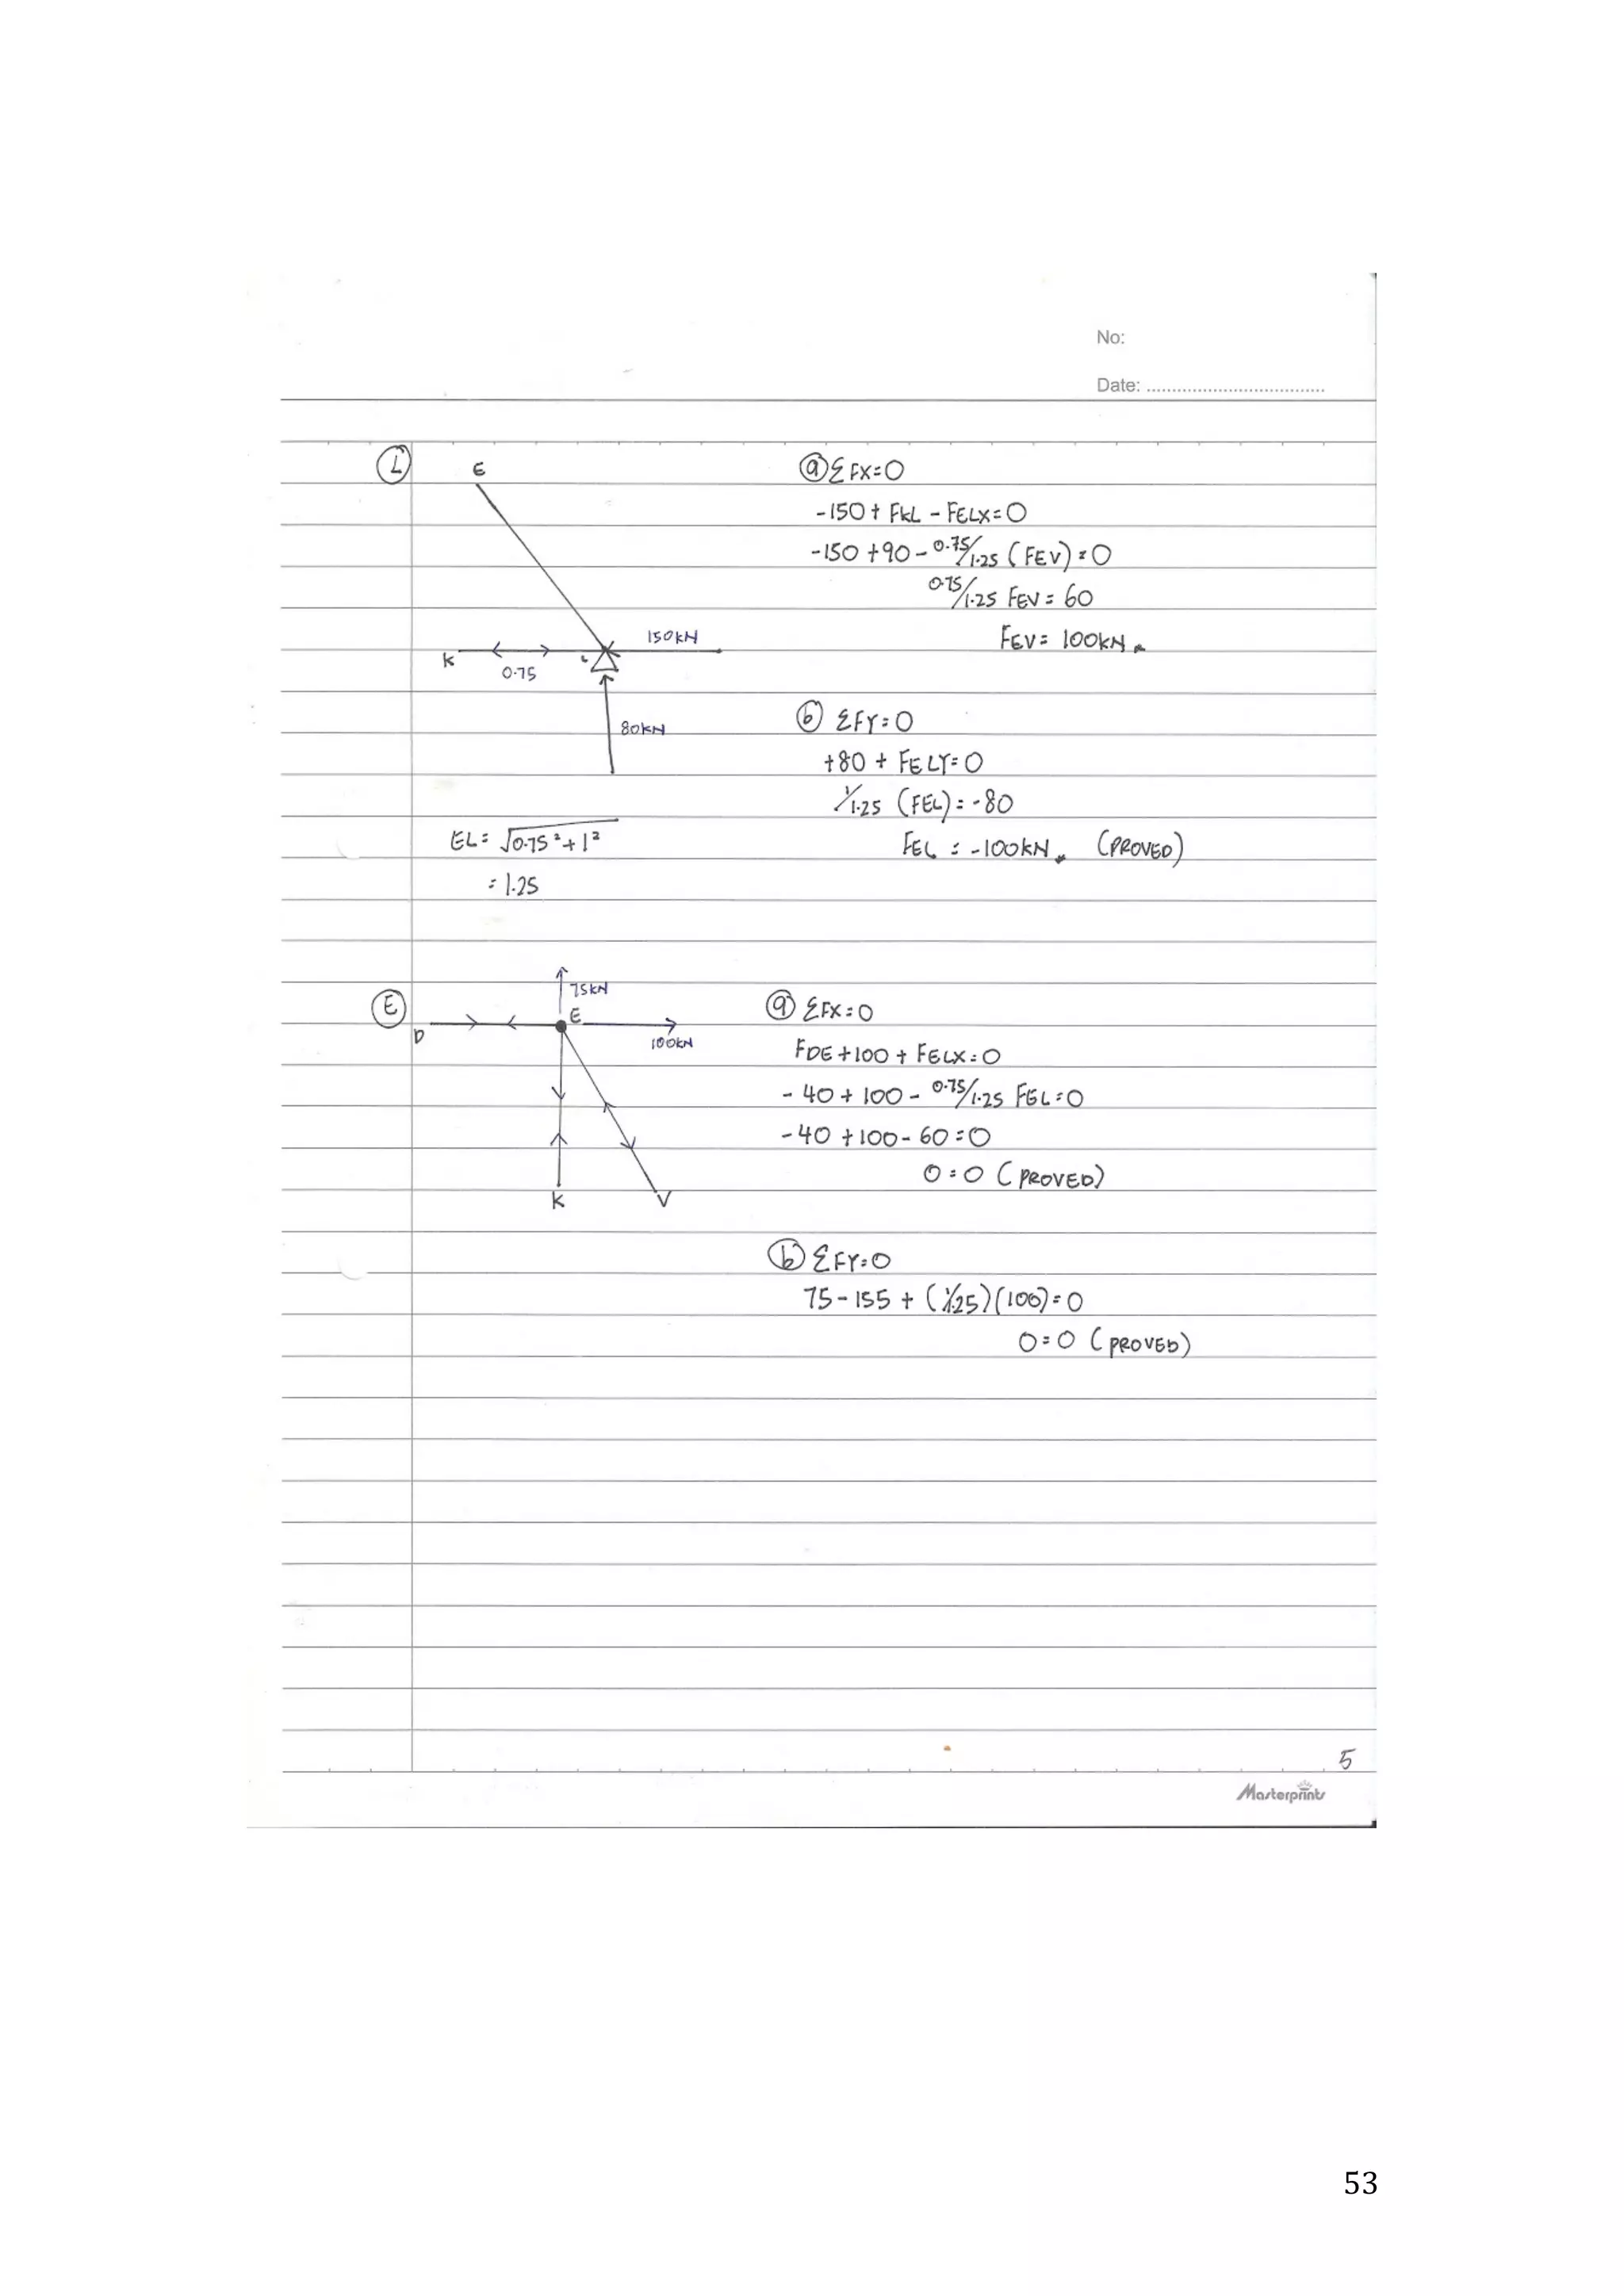 No:
Date: ..................................
L
E
K
0.75
L
150KN
80KN
EL = √0.75² + 1²
= 1.25
ⓐ ΣFX=0
-150 + FKL - FELX = 0
-150 + 90 - 0.75/1.25 (FEV) = 0
0.75/1.25 FEV = 60
FEV = 100KN
ⓑ ΣFY = 0
+80 + FELY = 0
1/1.25 (FEL) = -80
FEL = -100KN (PROVED)
E
75KN
E
D
100KN
K
V
ⓐ ΣFX = 0
FDE + 100 + FELX = 0
- 40 + 100 - 0.75/1.25 FEL = 0
- 40 + 100 - 60 = 0
0 = 0 (PROVED)
ⓑ ΣFY = 0
75 - 155 + (1/1.25)(100) = 0
0 = 0 (PROVED)
5
Masterprints
53